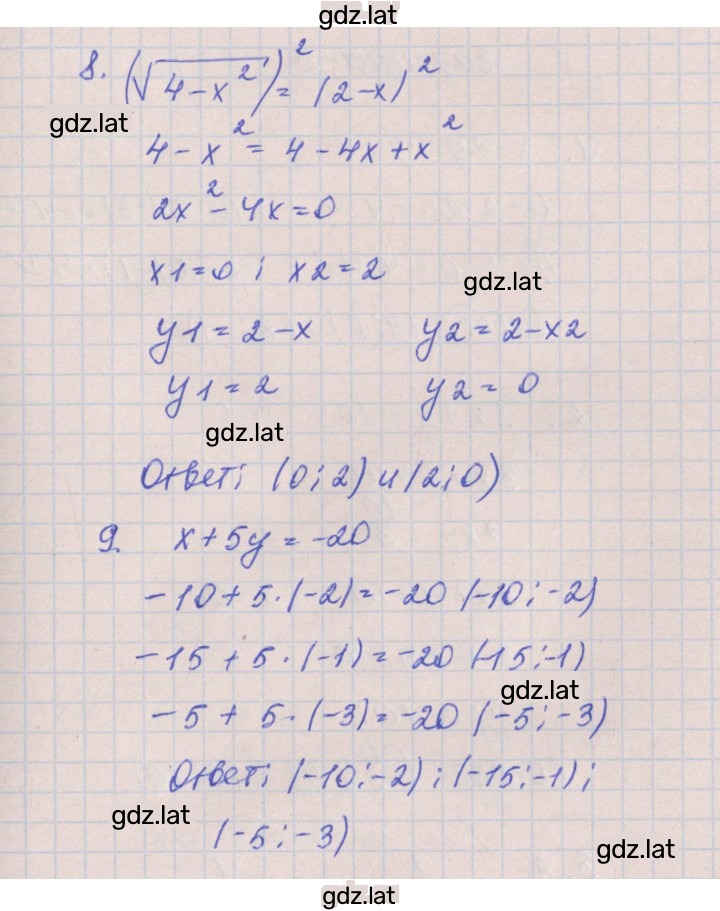 gdz.lat
8. (√4-x²)² = (2-x)²
gdz.lat
4-x² = 4-4x+x²
2x²-4x=0
x1=0; x2=2
gdz.lat
y1=2-x y2=2-x2
y1=2 y2=0
gdz.lat
Ответ; (0;2) и (2;0)
9. x+5y=-20
-10+5·(-2)=-20 (-10;-2)
-15+5·(-1)=-20 (-15;-1)
gdz.lat
-5+5·(-3)=-20 (-5;-3)
Ответ; (-10;-2); (-15;-1);
gdz.lat
(-5;-3)
gdz.lat
gdz.lat